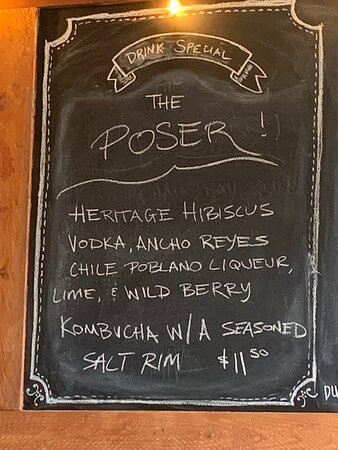 DRINK SPECIAL
THE
POSER!
HERITAGE HIBISCUS
VODKA, ANCHO REYES
CHILE POBLANO LIQUEUR,
LIME, & WILD BERRY
KOMBUCHA W/A SEASONED
SALT RIM $11 50